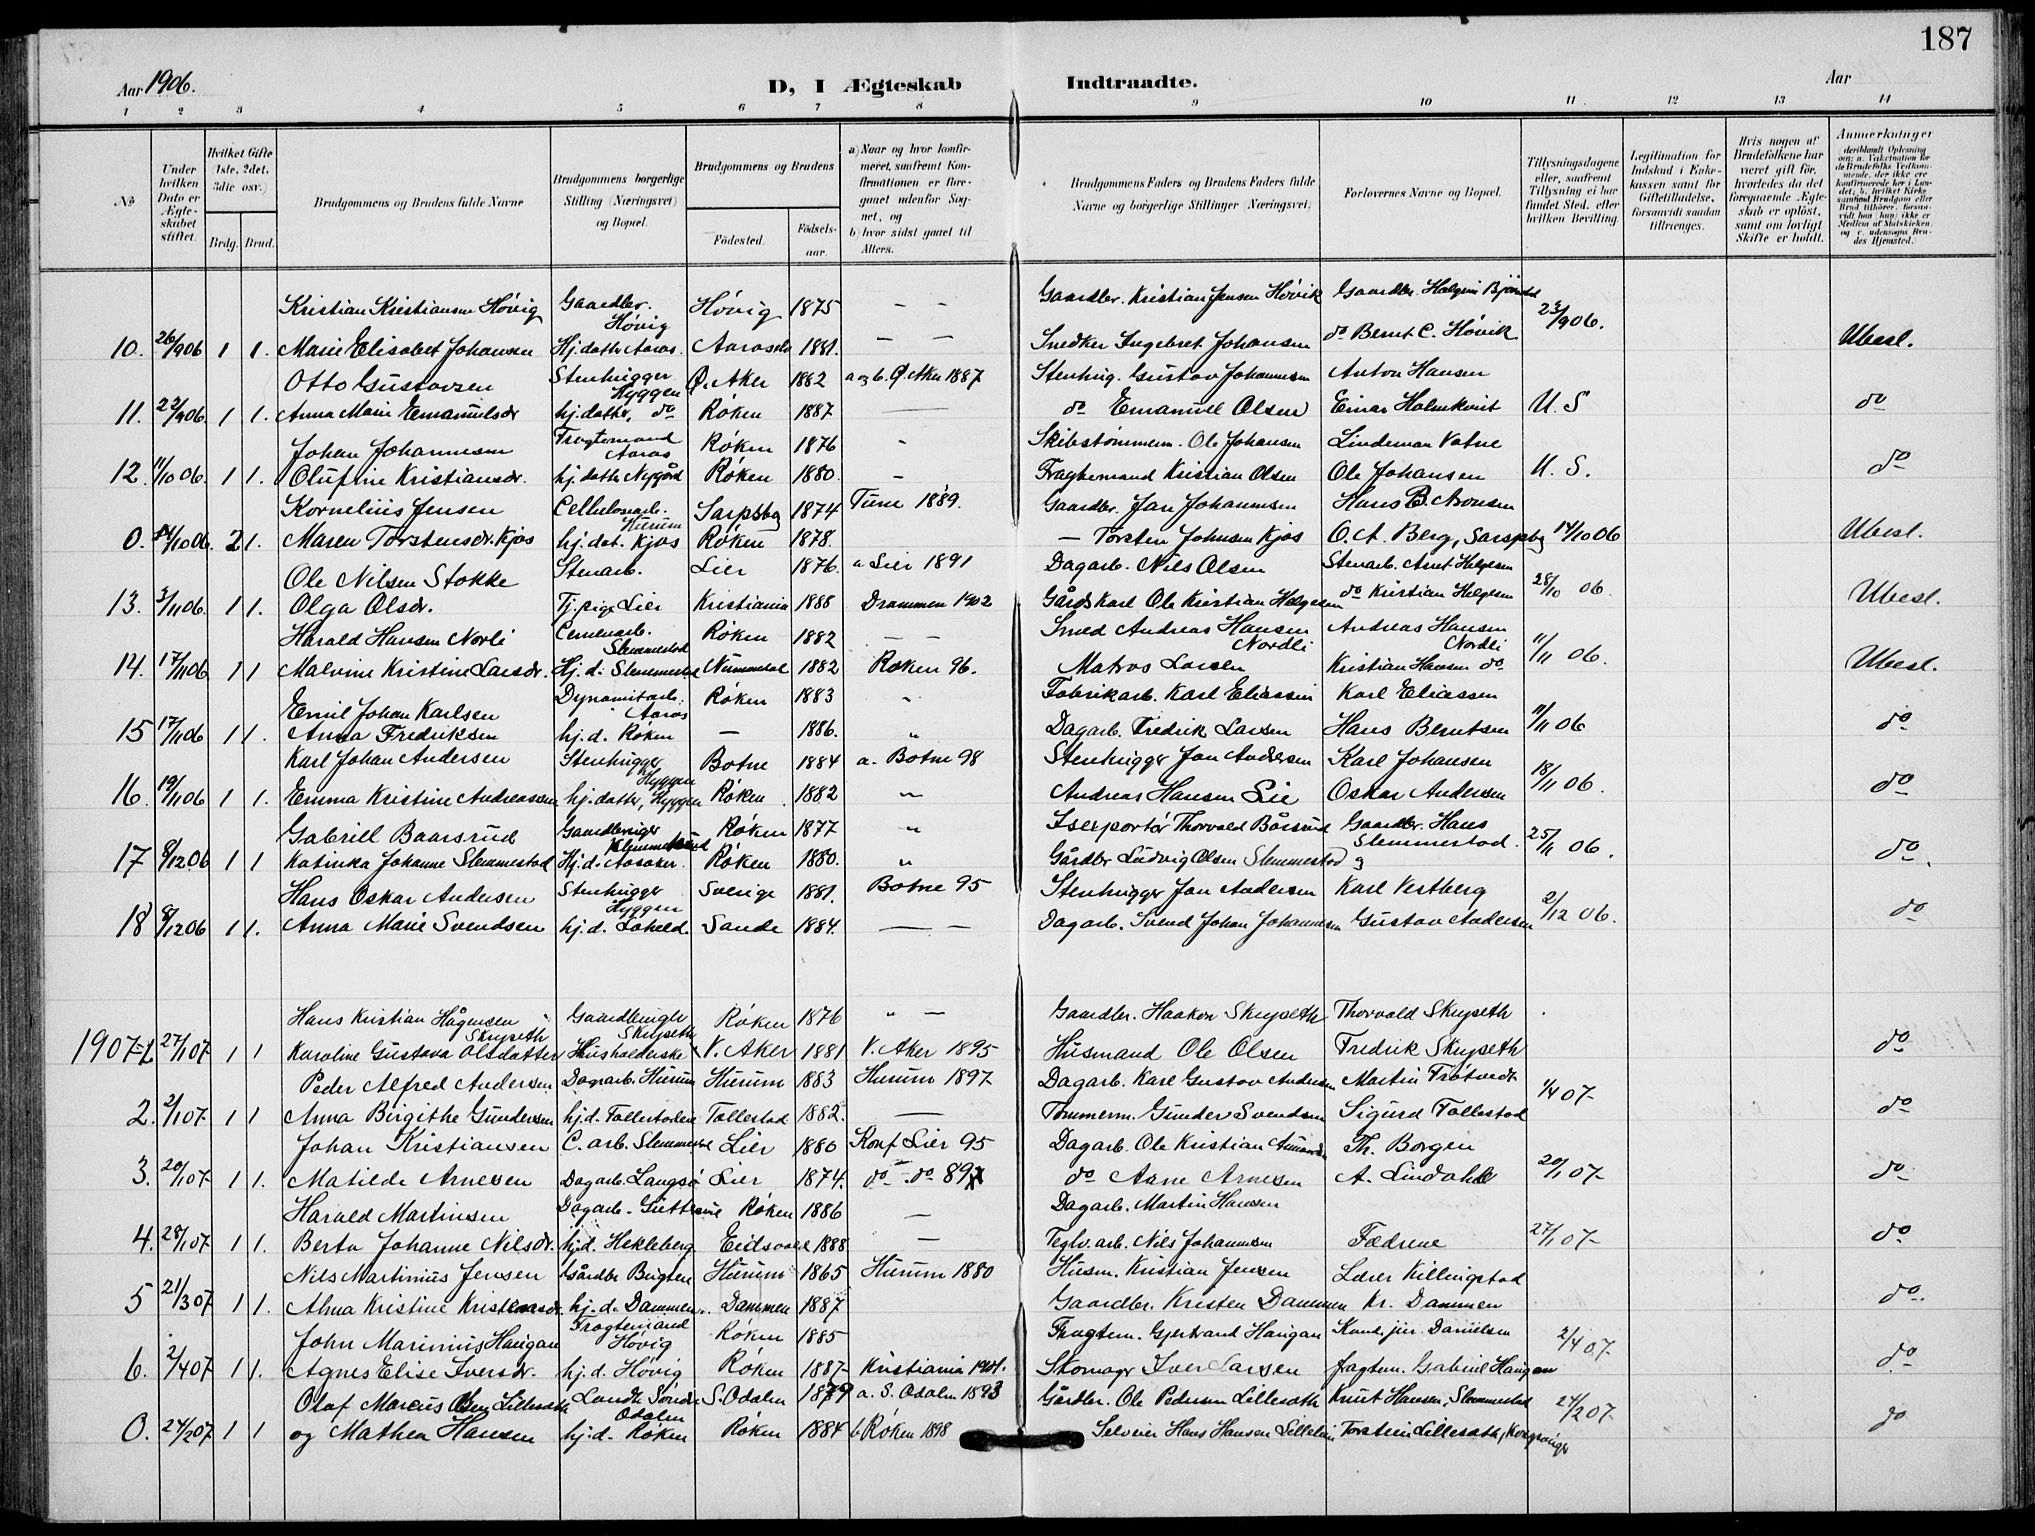 187
Aar 1906.
D, I Ægteskab Indtraadte.
Aar
1 2 3 4 5 6 7 8 9 10 11 12 13 14
No
Under hvilken Dato er Ægteskabet stiftet.
Hvilket Gifte (1ste, 2det, 3die osv.)
Brdg. Brud.
Brudgommens og Brudens fulde Navne
Brudgommens borgerlige Stilling (Næringsvei) og Bopæl.
Brudgommens og Brudens
Födested.
Födsels-aar.
a) Naar og hvor konfirmeret, saafremt Konfirmationen er foregaaet udenfor Sognet, og
b) hvor sidst gaaet til Alters.
Brudgommens Faders og Brudens Faders fulde Navne og borgerlige Stillinger (Næringsvei)
Forlovernes Navne og Bopæl.
Tillysningsdagene eller, saafremt Tillysning ei har fundet Sted, efter hvilken Bevilling.
Legitimation for Indskud i Enkekassen samt for Giftetilladelse, forsaavidt saadan tiltrænges.
Hvis nogen af Brudefolkene har været gift för, hvorledes da det foregaaende Ægteskab er oplöst, samt om lovligt Skifte er holdt.
Anmerkninger
Kristian Kristiansen Hövig Gaardbr. Hövig Hövig 1875 — — Gaardbr. Kristian Jensen Hövik Gaardbr. Halgrim Björnstad 23/9 06.
10. 26/9 06 1 1. Marie Elisabet Johansen Hj. dath Aaros. Aarosed 1881. — — Snedker Ingebret Johansen do Bernt C. Hövik Ubesl.
Otto Gustavsen Stenhugger Hyggen Ø. Aker 1882 a og b. Ø. Aker 1887 Stenhug. Gustav Johannesen Anton Hansen
11. 22/9 06. 1 1. Anna Marie Emanuelsdr hj. dath. do Röken 1887 — do Emanuel Olsen Einar Holmkvist U. S do
Johan Johannesen Fragtemand Aaros Röken 1876 Skibstömmerm. Ole Johansen Lindeman Vatne
12. 11/10 06. 1 1. Olufine Kristiansdr. hj. dath Nygård Röken 1880. — Fragtemand Kristian Olsen Ole Johansen U. S. do
Kornelius Jensen Cellulosearb. Hurum Sarpsbg 1874 Tune 1889. Gaardbr. Jan Johannesen Hans B. Aronsen
0. 14/10 06. 2 1. Maren Torstensdr. Kjos hj. dat. Kjos Röken 1878. — Torsten Johnsen Kjos O. A. Berg, Sarpsbg 14/10 06 Ubesl.
Ole Nilsen Stokke Stenarb. Lier 1876. a Lier 1891 Dagarb. Nils Olsen Stenarb. Anet Helgesen
13. 3/11 06. 1 1. Olga Olsdr. Tj. pige Lier Kristiania 1888 Drammen 1902 Gårdskarl Ole Kristian Helgesen do Kristian Helgesen 28/10 06. Ubesl.
Harald Hansen Norli Cemenarb. Slemmestad Röken 1882 — — Smed Andreas Hansen Nordli Andreas Hansen Nordli
14. 17/11 06 1 1 Malvine Kristine Larsdr. Hj. d. Slemmestad Nummedal 1882 Röken 96. Matros Larsen Kristian Hansen do 11/11 06. Ubesl.
Emil Johan Karlsen Dynamitarb. Aaros Röken 1883 Fabrikarb. Karl Eliassen Karl Eliassen
15 17/11 06 1 1. Anna Fredriksen hj. d. Röken — 1886. " Dagarb. Fredrik Larsen Hans Berntsen 11/11 06 do
Karl Johan Andersen Stenhugger Hyggen Botne 1884 a. Botne 98 Stenhugger Jan Andersen Karl Johansen
16. 19/11 06 1 1. Emma Kristine Andreassen hj. datter, Hyggen Röken 1882 " Andreas Hansen Lie Oskar Andersen 18/11 06. do
Gabriel Baarsrud Gaardbruger Slemmestad Röken 1877 " Isexportör Thorvald Bårsrud Gaardbr. Hans Slemmestad
17 8/12 06 1 1 Katinka Johanne Slemmestad Hj. d. Aasaker. Röken 1880. " Gårdbr Ludvig Olsen Slemmestad og 25/11 06. do.
Hans Oskar Andersen Stenhugger Hyggen Sverige 1881. Botne 95 Stenhugger Jan Andersen Karl Vestberg
18 8/12 06 1 1. Anna Marie Svendsen hj. d. Loheld Sande 1884. — — Dagarb. Svend Johan Johannesen Gustav Andersen 2/12 06. do
Hans Kristian Hågensen Skryseth Gaardbruger Skryseth Röken 1876 " — Gaardbr. Haakon Skryseth Thorvald Skryseth
1907-1 27/1 07 1 1 Karoline Gustava Olsdatter Husholderske V. Aker 1881 V. Aker 1895 Husmand Ole Olsen Fredrik Skryseth do
Peder Alfred Andersen Dagarb. Hurum Hurum 1883 Hurum 1897 Dagarb. Karl Gustav Andersen Martin Tråtvedt 1/4 07-
2. 2/1 07- 1 1 Anna Birgithe Gundersen hj. d. Follestadeie Follestad 1882. — Tömmerm. Gunder Svendsen Sigurd Follestad do
Johan Kristiansen C. arb. Slemmestad Lier 1880 Konf Lier 95 Dagarb. Ole Kristian Amundsen Th. Borgen
3. 20/1 07- 1 1. Matilde Arnesen Dagarb. Langsö Lier 1874. do do 89 do Aane Arnesen A. Lindahl 20/1 07- do
Harald Martinsen Dagarb. Röken 1886 — Dagarb. Martin Hansen
4. 28/1 07 1 1. Berta Johanne Nilsdr. hj. d. Hekleberg Eidsvold 1888 — Teglv. arb. Nils Johannesen Fædrene 27/1 07- do
Nils Martinius Jensen Gårdbr Bugten Hurum 1865 Hurum 1880 Husm. Kristian Jensen Lærer Killingstad
5 21/3 07 1 1. Alma Kristine Kristensdr. hj. d. Dammen. Dammen 1887 Gaardbr. Kristen Dammen Kr. Dammen do.
John Marinius Haugan Fragtemand Hövig Röken 1885 Fragtem. Gjertrand Haugan Kand. jur. Danielsen
6. 2/4 07 1 1. Agnes Elise Iversdr. hj. d. Hövig Röken 1887- Kristiania 1901. Skomagr Iver Larsen fragtm. Gabriel Haugan 2/4 07- do
Olaf Marcus Olsen Lillesæth Landh. Söndre Odalen S. Odalen 1879 a. S. Odalen 1893 Gårdbr. Ole Pedersen Lillesæth Knut Hansen, Slemmestad
0. 24/2 07 1 1 og Mathea Hansen hj. d. Röken Röken 1884 b Röken 1898 Selveier Hans Hansen Lillelien Torstein Lillesæth, Kongsvinger 24/2 07- do